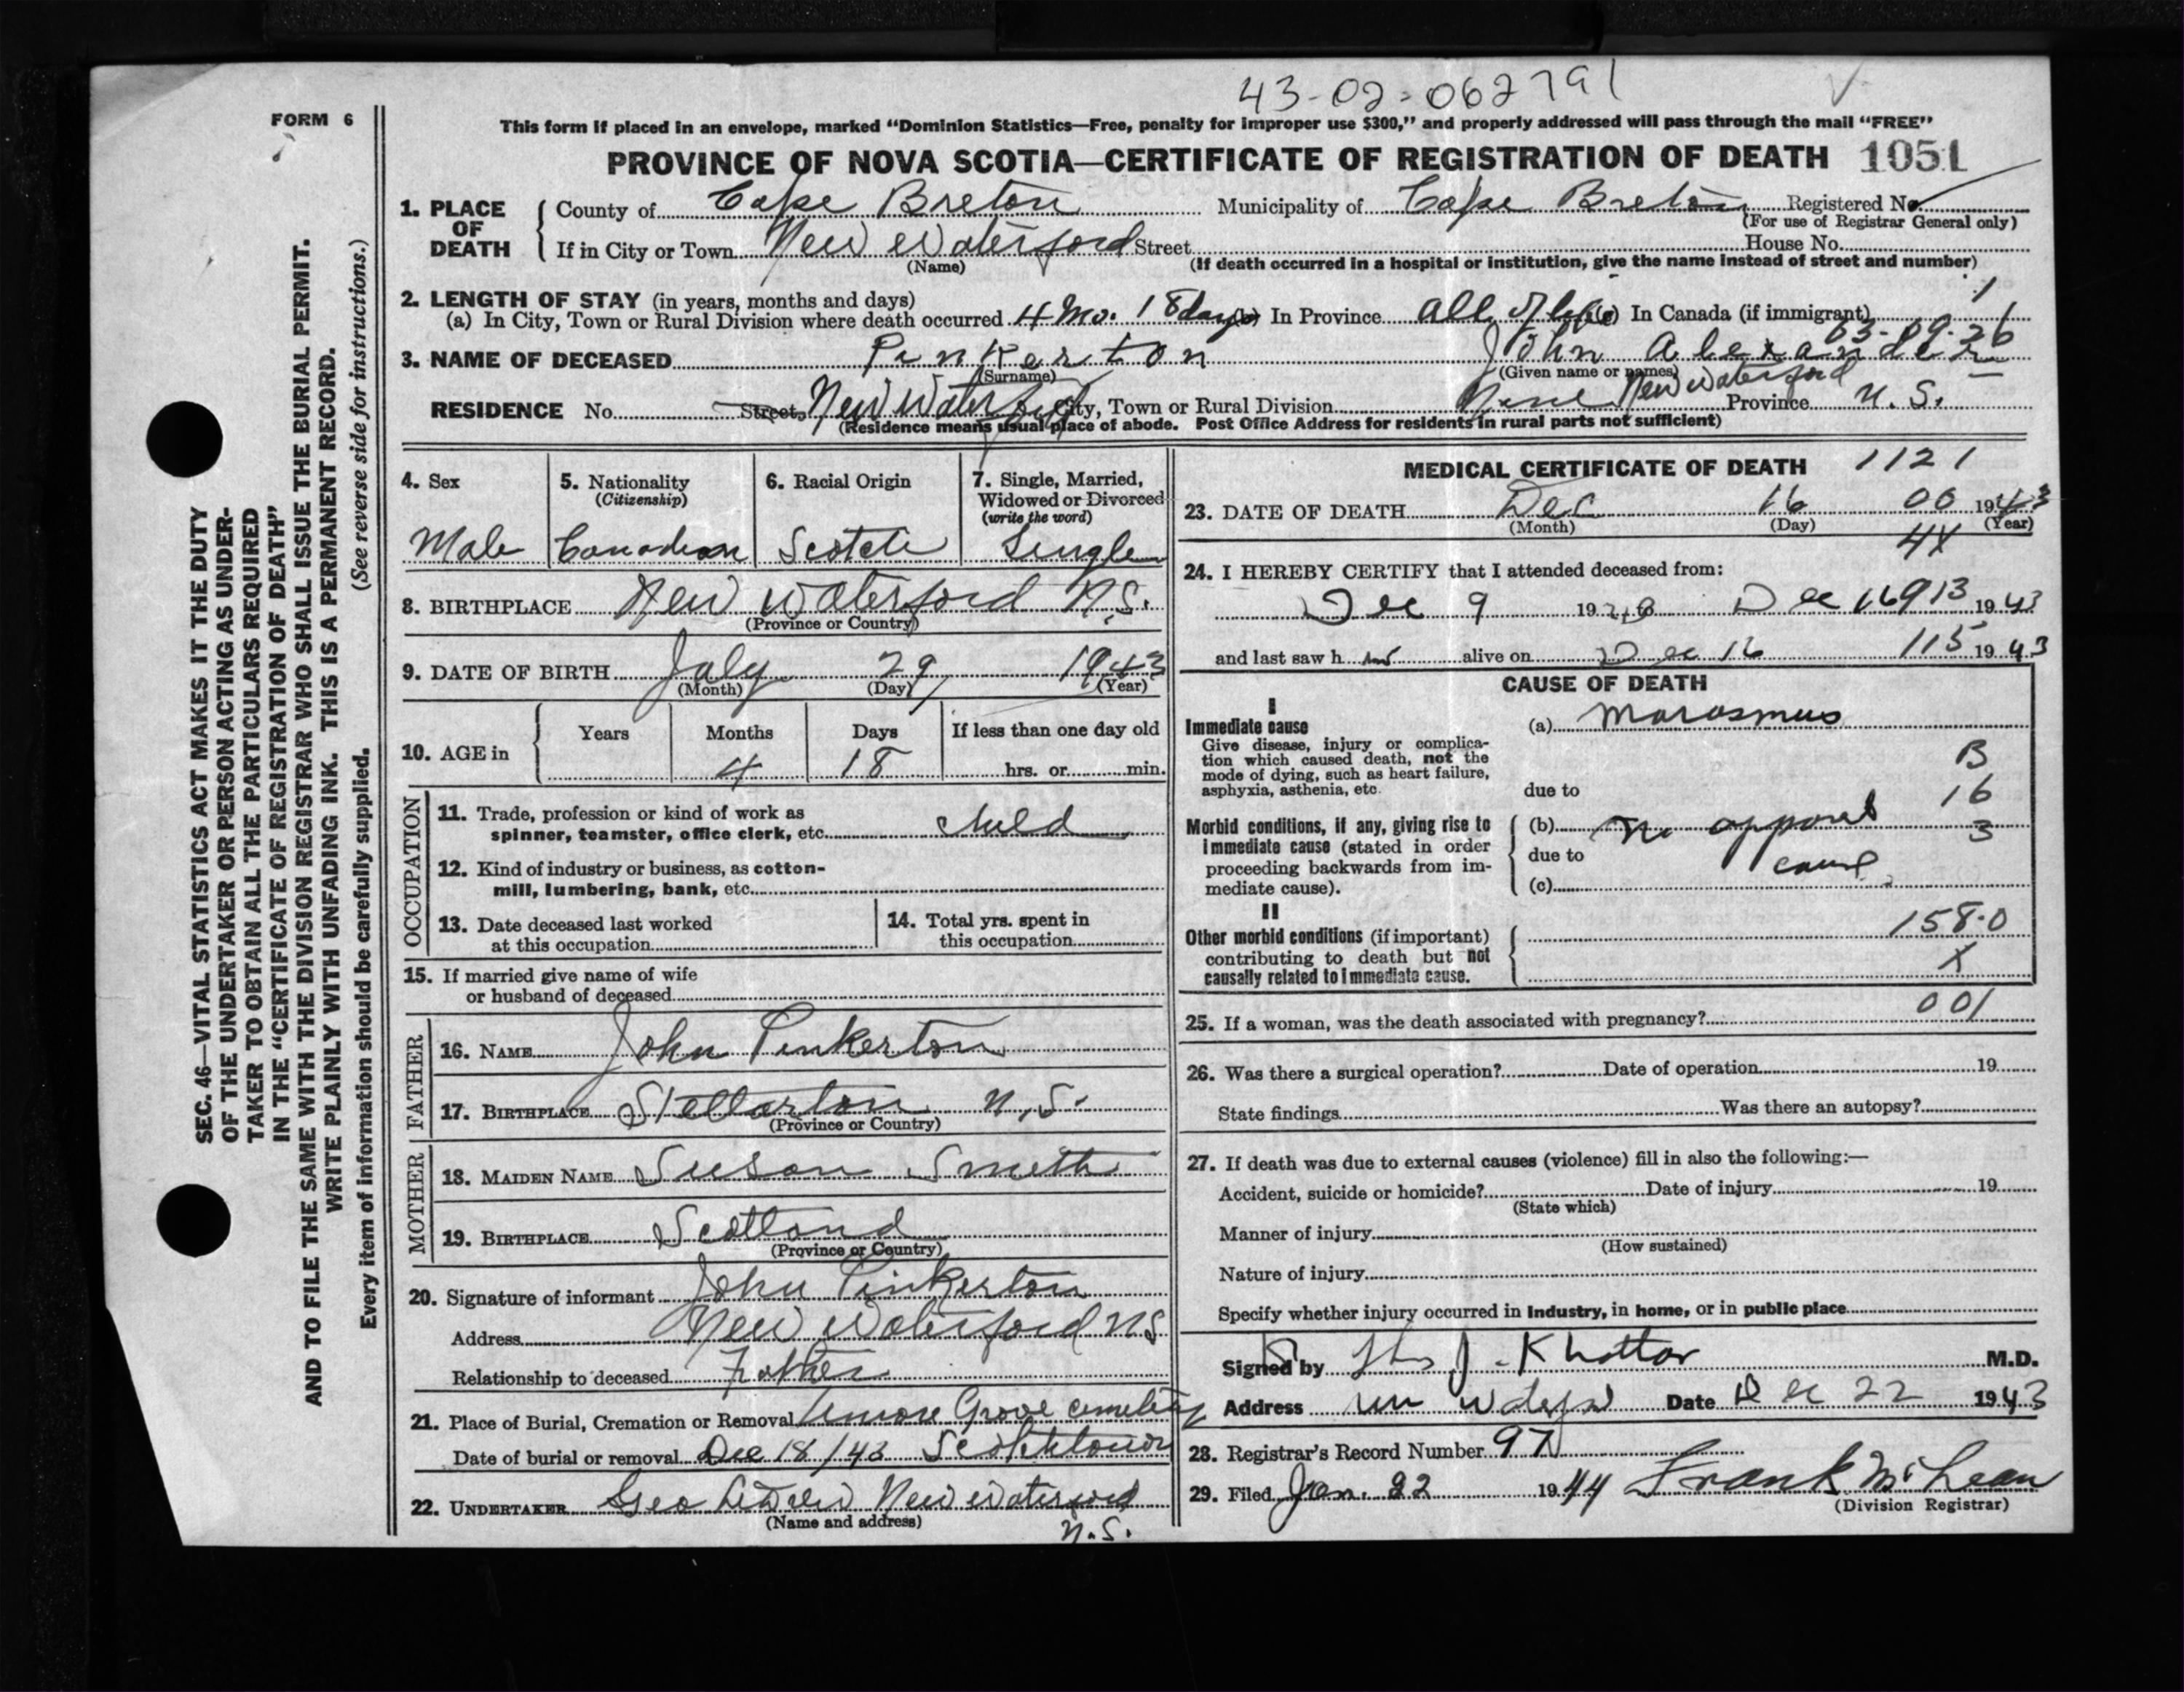 43-02-062791
FORM 6
This form if placed in an envelope, marked "Dominion Statistics—Free, penalty for improper use $300," and properly addressed will pass through the mail "FREE"
PROVINCE OF NOVA SCOTIA—CERTIFICATE OF REGISTRATION OF DEATH 1051
1. PLACE OF DEATH County of Cape Breton Municipality of Cape Breton Registered No.
(For use of Registrar General only)
If in City or Town New Waterford Street House No.
(Name) (If death occurred in a hospital or institution, give the name instead of street and number)
2. LENGTH OF STAY (in years, months and days) 1
(a) In City, Town or Rural Division where death occurred 4 Mo. 18 days (b) In Province All of life (c) In Canada (if immigrant)
63-09-26
3. NAME OF DECEASED Pinkerton John Alexander
(Surname) (Given name or names)
RESIDENCE No. Street, New Waterford City, Town or Rural Division New Waterford Province N.S.
(Residence means usual place of abode. Post Office Address for residents in rural parts not sufficient)
4. Sex 5. Nationality (Citizenship) 6. Racial Origin 7. Single, Married, Widowed or Divorced (write the word)
Male Canadian Scotch Single
8. BIRTHPLACE New Waterford N.S.
(Province or Country)
9. DATE OF BIRTH July 29 1943
(Month) (Day) (Year)
10. AGE in Years Months Days If less than one day old
4 18 hrs. or min.
OCCUPATION
11. Trade, profession or kind of work as
spinner, teamster, office clerk, etc. child
12. Kind of industry or business, as cotton-
mill, lumbering, bank, etc.
13. Date deceased last worked
at this occupation
14. Total yrs. spent in
this occupation
15. If married give name of wife
or husband of deceased
FATHER
16. NAME John Pinkerton
17. BIRTHPLACE Stellarton N.S.
(Province or Country)
MOTHER
18. MAIDEN NAME Susan Smith
19. BIRTHPLACE Scotland
(Province or Country)
20. Signature of informant John Pinkerton
Address New Waterford NS
Relationship to deceased Father
21. Place of Burial, Cremation or Removal Grove cemetery
Date of burial or removal Dec 18/43 Scotchtown
22. UNDERTAKER Geo New Waterford
(Name and address) N.S.
MEDICAL CERTIFICATE OF DEATH 1121
23. DATE OF DEATH Dec 16 00 1943
(Month) (Day) (Year)
4X
24. I HEREBY CERTIFY that I attended deceased from:
Dec 9 19 to Dec 16 913 1943
and last saw h alive on Dec 16 115 1943
CAUSE OF DEATH
I
Immediate cause (a) Marasmus
Give disease, injury or complica-
tion which caused death, not the
mode of dying, such as heart failure,
asphyxia, asthenia, etc.
due to
B
16
3
Morbid conditions, if any, giving rise to
immediate cause (stated in order
proceeding backwards from im-
mediate cause).
(b) No apparent
due to cause
(c)
II
Other morbid conditions (if important)
contributing to death but not
causally related to immediate cause.
158.0
X
001
25. If a woman, was the death associated with pregnancy?
26. Was there a surgical operation? Date of operation 19
State findings Was there an autopsy?
27. If death was due to external causes (violence) fill in also the following:—
Accident, suicide or homicide? Date of injury 19
(State which)
Manner of injury
(How sustained)
Nature of injury
Specify whether injury occurred in Industry, in home, or in public place
Signed by J. Khattar M.D.
Address Date Dec 22 1943
28. Registrar's Record Number 97
29. Filed Jan. 22 1944 Frank McLean
(Division Registrar)
SEC. 46—VITAL STATISTICS ACT MAKES IT THE DUTY
OF THE UNDERTAKER OR PERSON ACTING AS UNDER-
TAKER TO OBTAIN ALL THE PARTICULARS REQUIRED
IN THE "CERTIFICATE OF REGISTRATION OF DEATH"
AND TO FILE THE SAME WITH THE DIVISION REGISTRAR WHO SHALL ISSUE THE BURIAL PERMIT.
WRITE PLAINLY WITH UNFADING INK. THIS IS A PERMANENT RECORD.
Every item of information should be carefully supplied. (See reverse side for instructions.)